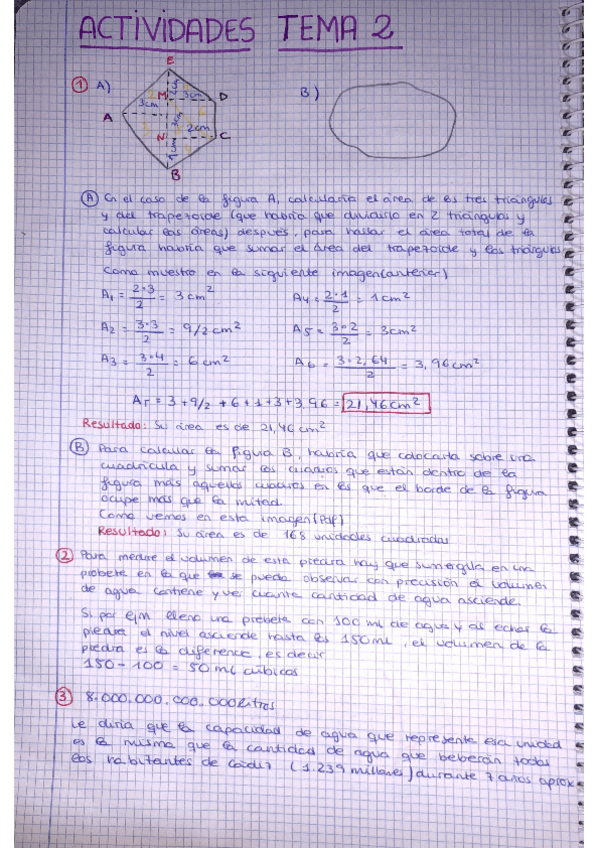 ACTIVIDADES TEMA 2
① A)
E
M
D
A
3cm
3cm
3cm
N
2cm
C
B
B)
Ⓐ En el caso de la figura A, calcularía el área de los tres triángulos
y del trapezoide (que habría que dividirlo en 2 triángulos y
calcular las áreas) después, para hallar el área total de la
figura habría que sumar el área del trapezoide y los triángulos
Como muestro en la siguiente imagen (anterior)
A1 = 2·3/2 = 3 cm²
A4 = 2·1/2 = 1 cm²
A2 = 3·3/2 = 9/2 cm²
A5 = 3·2/2 = 3 cm²
A3 = 3·4/2 = 6 cm²
A6 = 3·2,64/2 = 3,96 cm²
AT = 3 + 9/2 + 6 + 1 + 3 + 3,96 = 21,46 cm²
Resultado: Su área es de 21,46 cm²
Ⓑ Para calcular la figura B, habría que colocarla sobre una
cuadrícula y sumar los cuadros que están dentro de la
figura más aquellos cuadros en los que el borde de la figura
ocupe más que la mitad.
Como vemos en esta imagen (Pdf)
Resultado: Su área es de 168 unidades cuadradas
② Para medir el volumen de esta piedra hay que sumergirla en una
probeta en la que se pueda observar con precisión el volumen
de agua contiene y ver cuanta cantidad de agua asciende.
Si por ejm lleno una probeta con 100 ml de agua y al echar la
piedra el nivel asciende hasta los 150 ml, el volumen de la
piedra es la diference, es decir
150 - 100 = 50 ml cúbicos
③ 8.000.000.000.000 litros
Le diría que la capacidad de agua que representa esa unidad
es la misma que la cantidad de agua que beberán todos
los habitantes de Cádiz (1.239 millones) durante 7 años aprox.